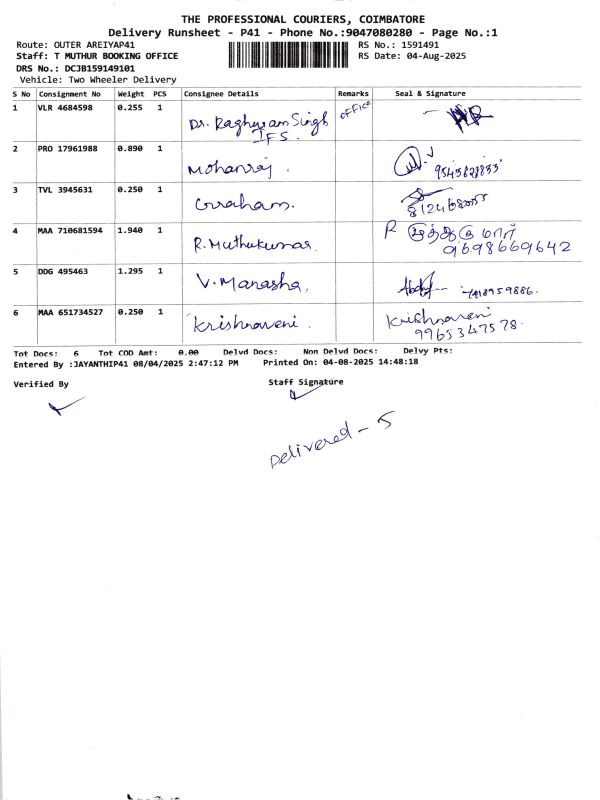 THE PROFESSIONAL COURIERS, COIMBATORE
Delivery Runsheet - P41 - Phone No.:9047080280 - Page No.:1
Route: OUTER AREIYAP41 RS No.: 1591491
Staff: T MUTHUR BOOKING OFFICE RS Date: 04-Aug-2025
DRS No.: DCJB159149101
Vehicle: Two Wheeler Delivery
S No Consignment No Weight PCS Consignee Details Remarks Seal & Signature
1 VLR 4684598 0.255 1 Dr. Raghuram Singh office
IFS.
2 PRO 17961988 0.890 1 Mohanraj.
3 TVL 3945631 0.250 1 Graham.
4 MAA 710681594 1.940 1 R. Muthukumar. R முத்து குமார்
9698669642
5 DDG 495463 1.295 1 V. Manasha.
6 MAA 651734527 0.250 1 Krishnaveni. Krishnaveni
9965347578.
Tot Docs: 6 Tot COD Amt: 0.00 Delvd Docs: Non Delvd Docs: Delvy Pts:
Entered By :JAYANTHIP41 08/04/2025 2:47:12 PM Printed On: 04-08-2025 14:48:18
Verified By Staff Signature
Delivered - 5